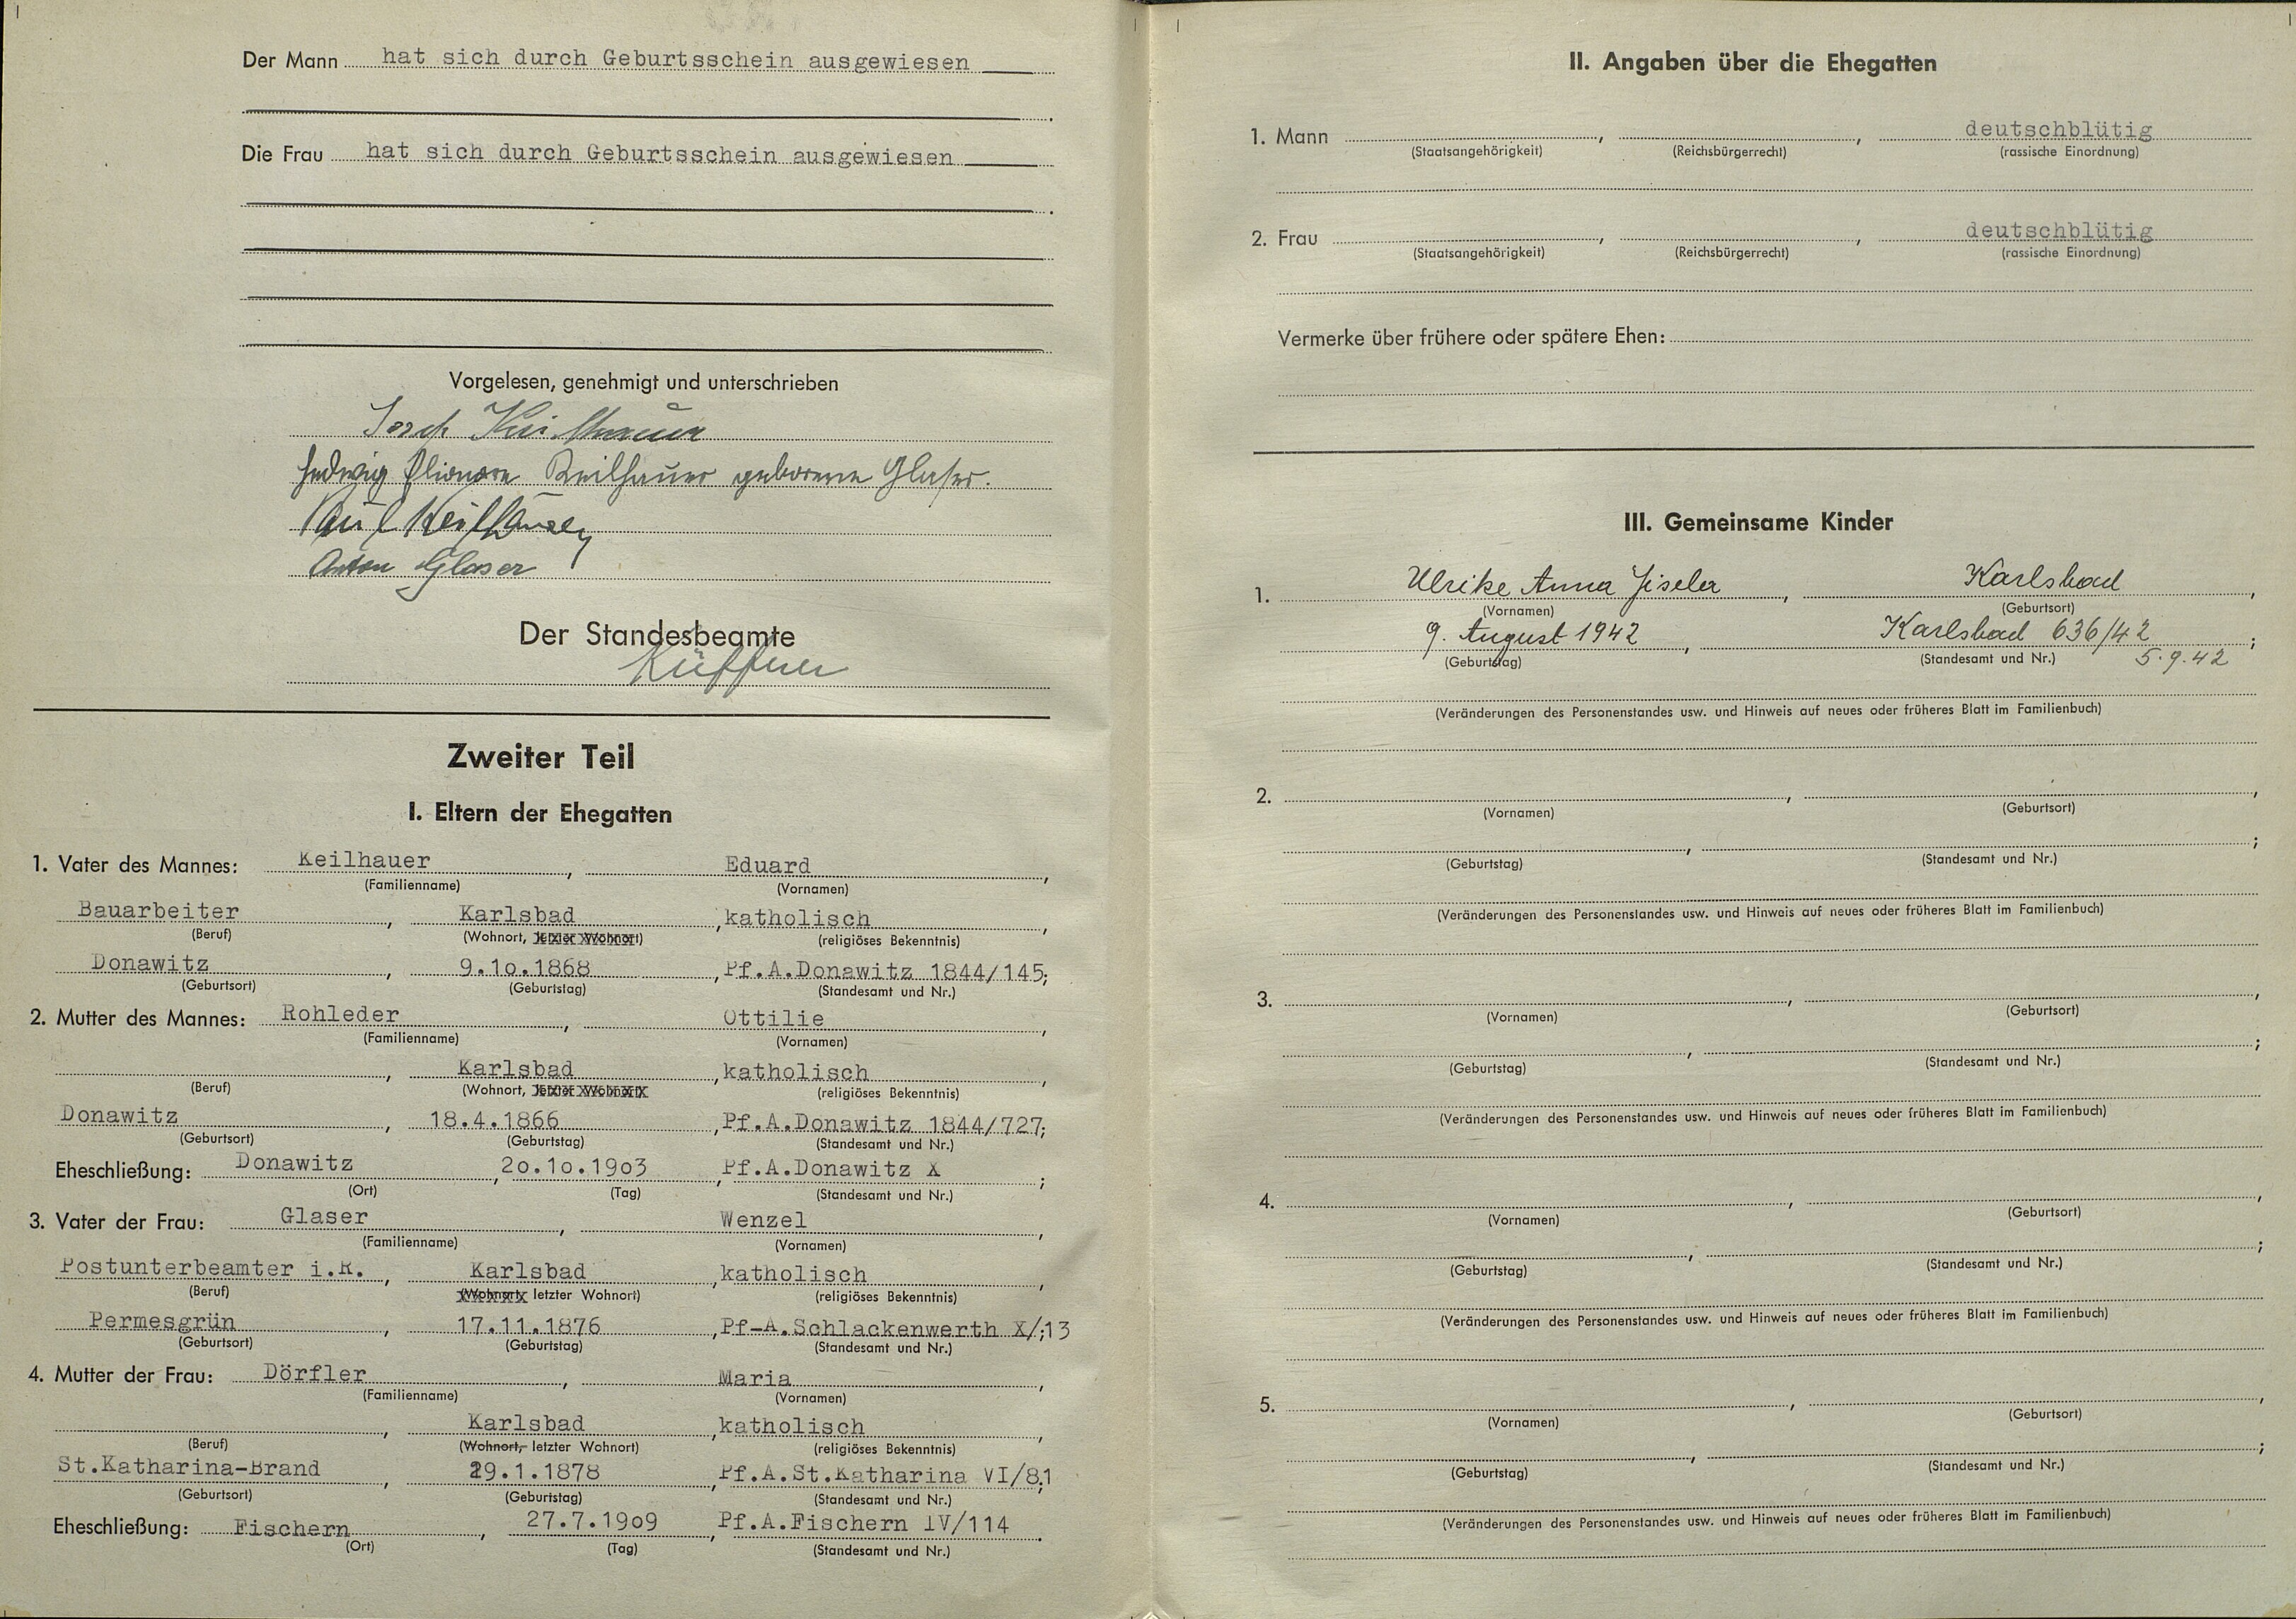 Der Mann hat sich durch Geburtsschein ausgewiesen
Die Frau hat sich durch Geburtsschein ausgewiesen
Vorgelesen, genehmigt und unterschrieben
Josef Keilhauer
Hedwig Elionore Keilhauer geborene Glaser.
Paul Keilhauer
Anton Glaser
Der Standesbeamte
Küffner
Zweiter Teil
I. Eltern der Ehegatten
1. Vater des Mannes: Keilhauer, Eduard,
(Familienname) (Vornamen)
Bauarbeiter, Karlsbad, katholisch,
(Beruf) (Wohnort, letzter Wohnort) (religiöses Bekenntnis)
Donawitz, 9.10.1868, Pf.A.Donawitz 1844/145;
(Geburtsort) (Geburtstag) (Standesamt und Nr.)
2. Mutter des Mannes: Rohleder, Ottilie,
(Familienname) (Vornamen)
, Karlsbad, katholisch,
(Beruf) (Wohnort, letzter Wohnort) (religiöses Bekenntnis)
Donawitz, 18.4.1866, Pf.A.Donawitz 1844/727;
(Geburtsort) (Geburtstag) (Standesamt und Nr.)
Eheschließung: Donawitz, 20.10.1903, Pf.A.Donawitz X;
(Ort) (Tag) (Standesamt und Nr.)
3. Vater der Frau: Glaser, Wenzel,
(Familienname) (Vornamen)
Postunterbeamter i.R., Karlsbad, katholisch,
(Beruf) (Wohnort, letzter Wohnort) (religiöses Bekenntnis)
Permesgrün, 17.11.1876, Pf-A.Schlackenwerth X/;13
(Geburtsort) (Geburtstag) (Standesamt und Nr.)
4. Mutter der Frau: Dörfler, Maria,
(Familienname) (Vornamen)
, Karlsbad, katholisch,
(Beruf) (Wohnort, letzter Wohnort) (religiöses Bekenntnis)
St.Katharina-Brand, 29.1.1878, Pf.A.St.Katharina VI/81;
(Geburtsort) (Geburtstag) (Standesamt und Nr.)
Eheschließung: Fischern, 27.7.1909, Pf.A.Fischern IV/114.
(Ort) (Tag) (Standesamt und Nr.)
II. Angaben über die Ehegatten
1. Mann , , deutschblütig
(Staatsangehörigkeit) (Reichsbürgerrecht) (rassische Einordnung)
2. Frau , , deutschblütig
(Staatsangehörigkeit) (Reichsbürgerrecht) (rassische Einordnung)
Vermerke über frühere oder spätere Ehen:
III. Gemeinsame Kinder
1. Ulrike Anna Gisela, Karlsbad,
(Vornamen) (Geburtsort)
9. August 1942, Karlsbad 636/42;
(Geburtstag) (Standesamt und Nr.) 5.9.42
(Veränderungen des Personenstandes usw. und Hinweis auf neues oder früheres Blatt im Familienbuch)
2. , ,
(Vornamen) (Geburtsort)
, ;
(Geburtstag) (Standesamt und Nr.)
(Veränderungen des Personenstandes usw. und Hinweis auf neues oder früheres Blatt im Familienbuch)
3. , ,
(Vornamen) (Geburtsort)
, ;
(Geburtstag) (Standesamt und Nr.)
(Veränderungen des Personenstandes usw. und Hinweis auf neues oder früheres Blatt im Familienbuch)
4. , ,
(Vornamen) (Geburtsort)
, ;
(Geburtstag) (Standesamt und Nr.)
(Veränderungen des Personenstandes usw. und Hinweis auf neues oder früheres Blatt im Familienbuch)
5. , ,
(Vornamen) (Geburtsort)
, ;
(Geburtstag) (Standesamt und Nr.)
(Veränderungen des Personenstandes usw. und Hinweis auf neues oder früheres Blatt im Familienbuch)